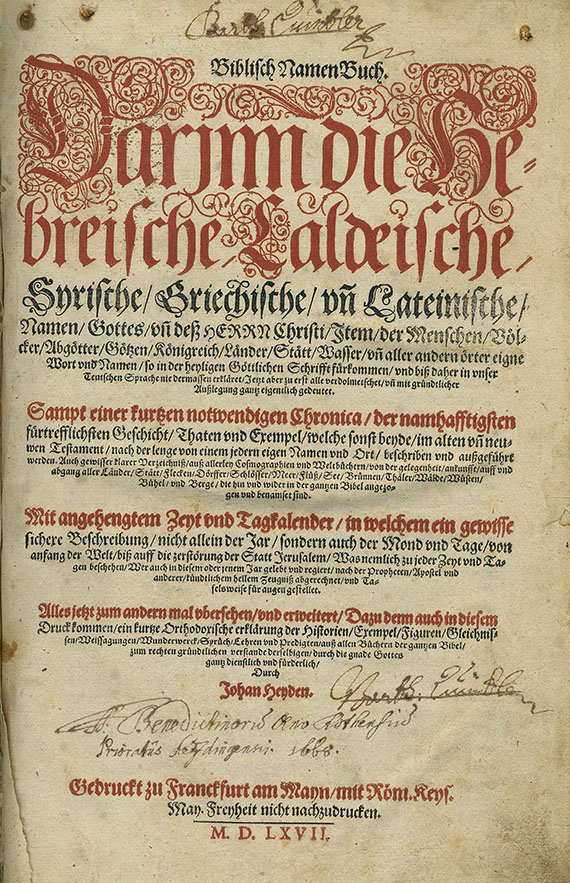 Barth.
Biblisch NamenBuch.
Darjnn die He-
breische/Caldeische/
Syrische/Griechische/vñ Lateinische/
Namen/Gottes/vñ deß HERRN Christi/Item/der Menschen/Völ-
cker/Abgötter/Götzen/Königreich/Länder/Stätt/Wasser/vñ aller andern örter eigne
Wort vnd Namen/so in der heyligen Göttlichen Schrifft fürkommen/vnd biß daher in vnser
Teutschen Sprache nie dermassen erkläret/Jetzt aber zu erst alle verdolmetschet/vñ mit gründtlicher
Außlegung gantz eigentlich gedeutet.
Sampt einer kurtzen notwendigen Chronica/der namhafftigsten
fürtrefflichsten Geschicht/Thaten vnd Exempel/welche sonst beyde/im alten vñ neu-
wen Testament/nach der lenge von einem jedern eigen Namen vnd Ort/beschriben vnd außgeführt
werden. Auch gewisser klarer Verzeichniß/auß allerley Cosmographien vnd Weltbüchern/von der gelegenheit/ankunfft/auff vnd
abgang aller Länder/Stätt/Flecken/Dörffer/Schlösser/Meer/Flüß/See/Brünnen/Thäler/Wäldt/Wüsten/
Bühel/vnd Berge/die hin vnd wider in der gantzen Bibel angezo-
gen vnd benamset sind.
Mit angehengtem Zeyt vnd Tagkalender/in welchem ein gewisse
sichere Beschreibung/nicht allein der Jar/sondern auch der Mond vnd Tage/von
anfang der Welt/biß auff die zerstörung der Statt Jerusalem/Was nemlich zu jeder Zeyt vnd Ta-
gen beschehen/Wer auch in diesem oder jenem Jar gelebt vnd regiert/nach der Propheten/Apostel vnd
anderer/kündtlichem hellem Zeugniß abgerechnet/vnd Ta-
felsweise für augen gestellet.
Alles jetzt zum andern mal vbersehen/vnd erweitert/Dazu denn auch in diesem
Druck kommen/ein kurtze Orthodoxische erklärung der Historien/Exempel/Figuren/Gleichnis-
sen/Weissagungen/Wunderwerck/Sprüch/Lehren vnd Predigten/auß allen Büchern der gantzen Bibel/
zum rechten gründtlichen verstande derselbigen/durch die gnade Gottes
gantz dienstlich vnd fürderlich/
Durch
Johan Heyden.
Barth.
Benedictinorum
Prioratus 1668.
Gedruckt zu Franckfurt am Mayn/mit Röm. Keys.
May. Freyheit nicht nachzudrucken.
M. D. LXVII.